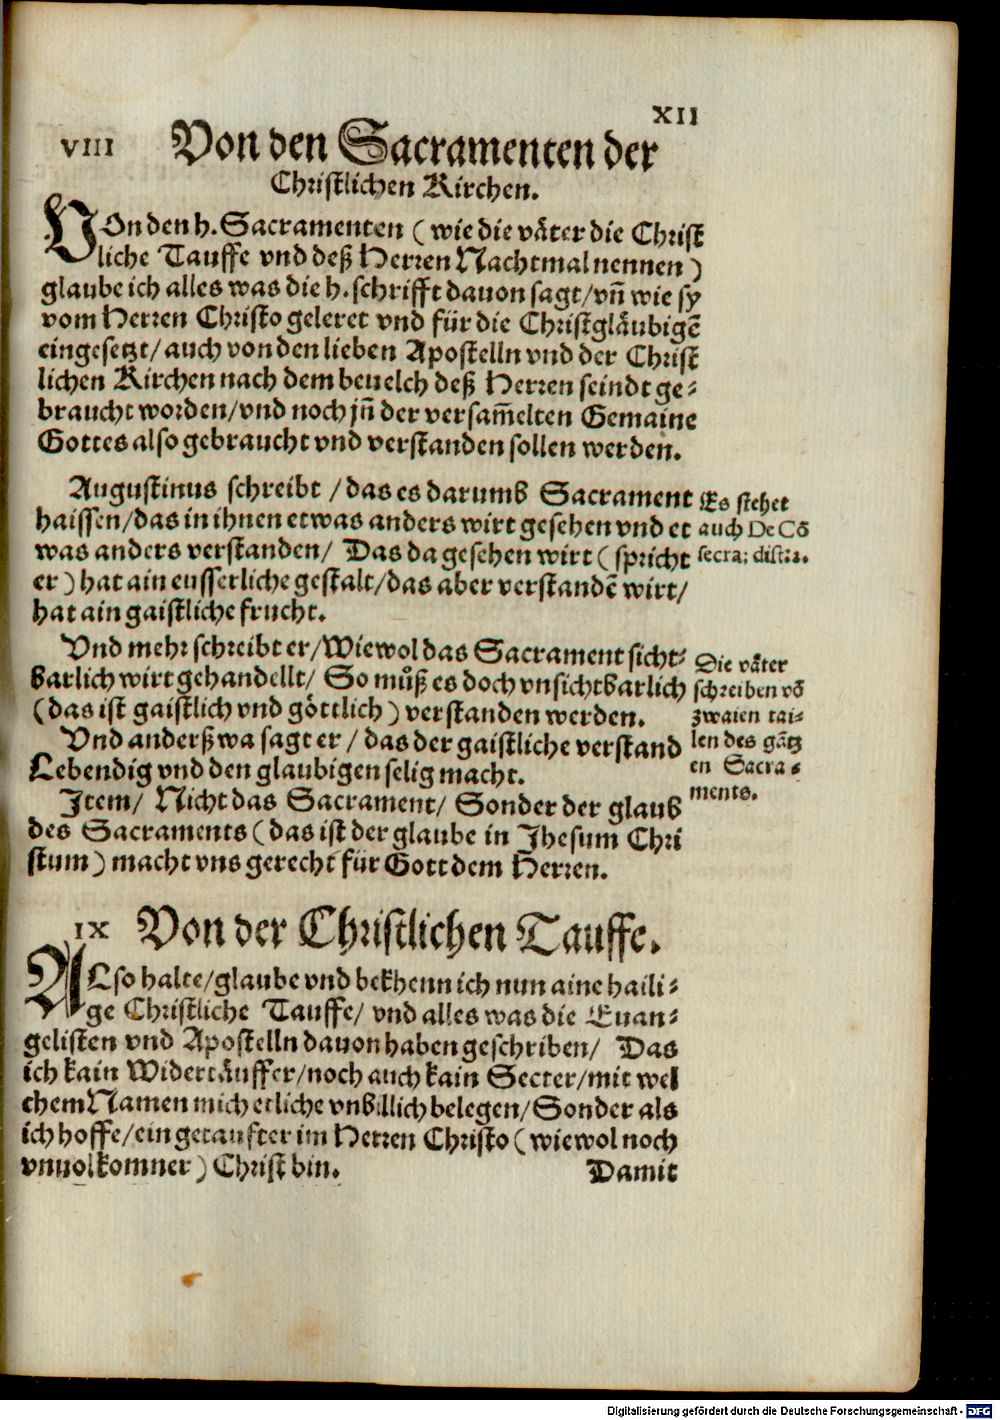 XII
VIII Von den Sacramenten der
Christlichen Kirchen.
VOn den h. Sacramenten ( wie die väter die Christ
liche Tauffe vnd deß Herren Nachtmal nennen )
glaube ich alles was die h. schrifft dauon sagt/ vñ wie sy
vom Herren Christo geleret vnd für die Christgläubigẽ
eingesetzt/ auch von den lieben Apostelln vnd der Christ
lichen Kirchen nach dem beuelch deß Herren seindt ge-
braucht worden/ vnd noch jñ der versam̃elten Gemaine
Gottes also gebraucht vnd verstanden sollen werden.
Augustinus schreibt / das es darumb Sacrament
haissen/ das in ihnen etwas anders wirt gesehen vnd et
was anders verstanden/ Das da gesehen wirt ( spricht
er ) hat ain eusserliche gestalt/ das aber verstandẽ wirt/
hat ain gaistliche frucht.
Es stehet
auch De Cõ
secra: distra.
Vnd mehr schreibt er/ Wiewol das Sacrament sicht-
barlich wirt gehandellt/ So můß es doch vnsichtbarlich
(das ist gaistlich vnd göttlich ) verstanden werden.
Vnd anderßwa sagt er / das der gaistliche verstand
Lebendig vnd den glaubigen selig macht.
Item/ Nicht das Sacrament/ Sonder der glaub
des Sacraments ( das ist der glaube in Jhesum Chri
stum ) macht vns gerecht für Gott dem Herren.
Die väter
schreiben võ
zwaien tai-
len des gãtz
en Sacra-
ments.
IX Von der Christlichen Tauffe.
ALso halte/ glaube vnd bekhenn ich nun aine haili-
ge Christliche Tauffe/ vnd alles was die Euan-
gelisten vnd Apostelln dauon haben geschriben/ Das
ich kain Widertäuffer/ noch auch kain Secter/ mit wel
chem Namen mich etliche vnbillich belegen/ Sonder als
ich hoffe/ ein getauffter im Herren Christo ( wiewol noch
vnuolkomner ) Christ bin.
Damit
Digitalisierung gefördert durch die Deutsche Forschungsgemeinschaft - DFG